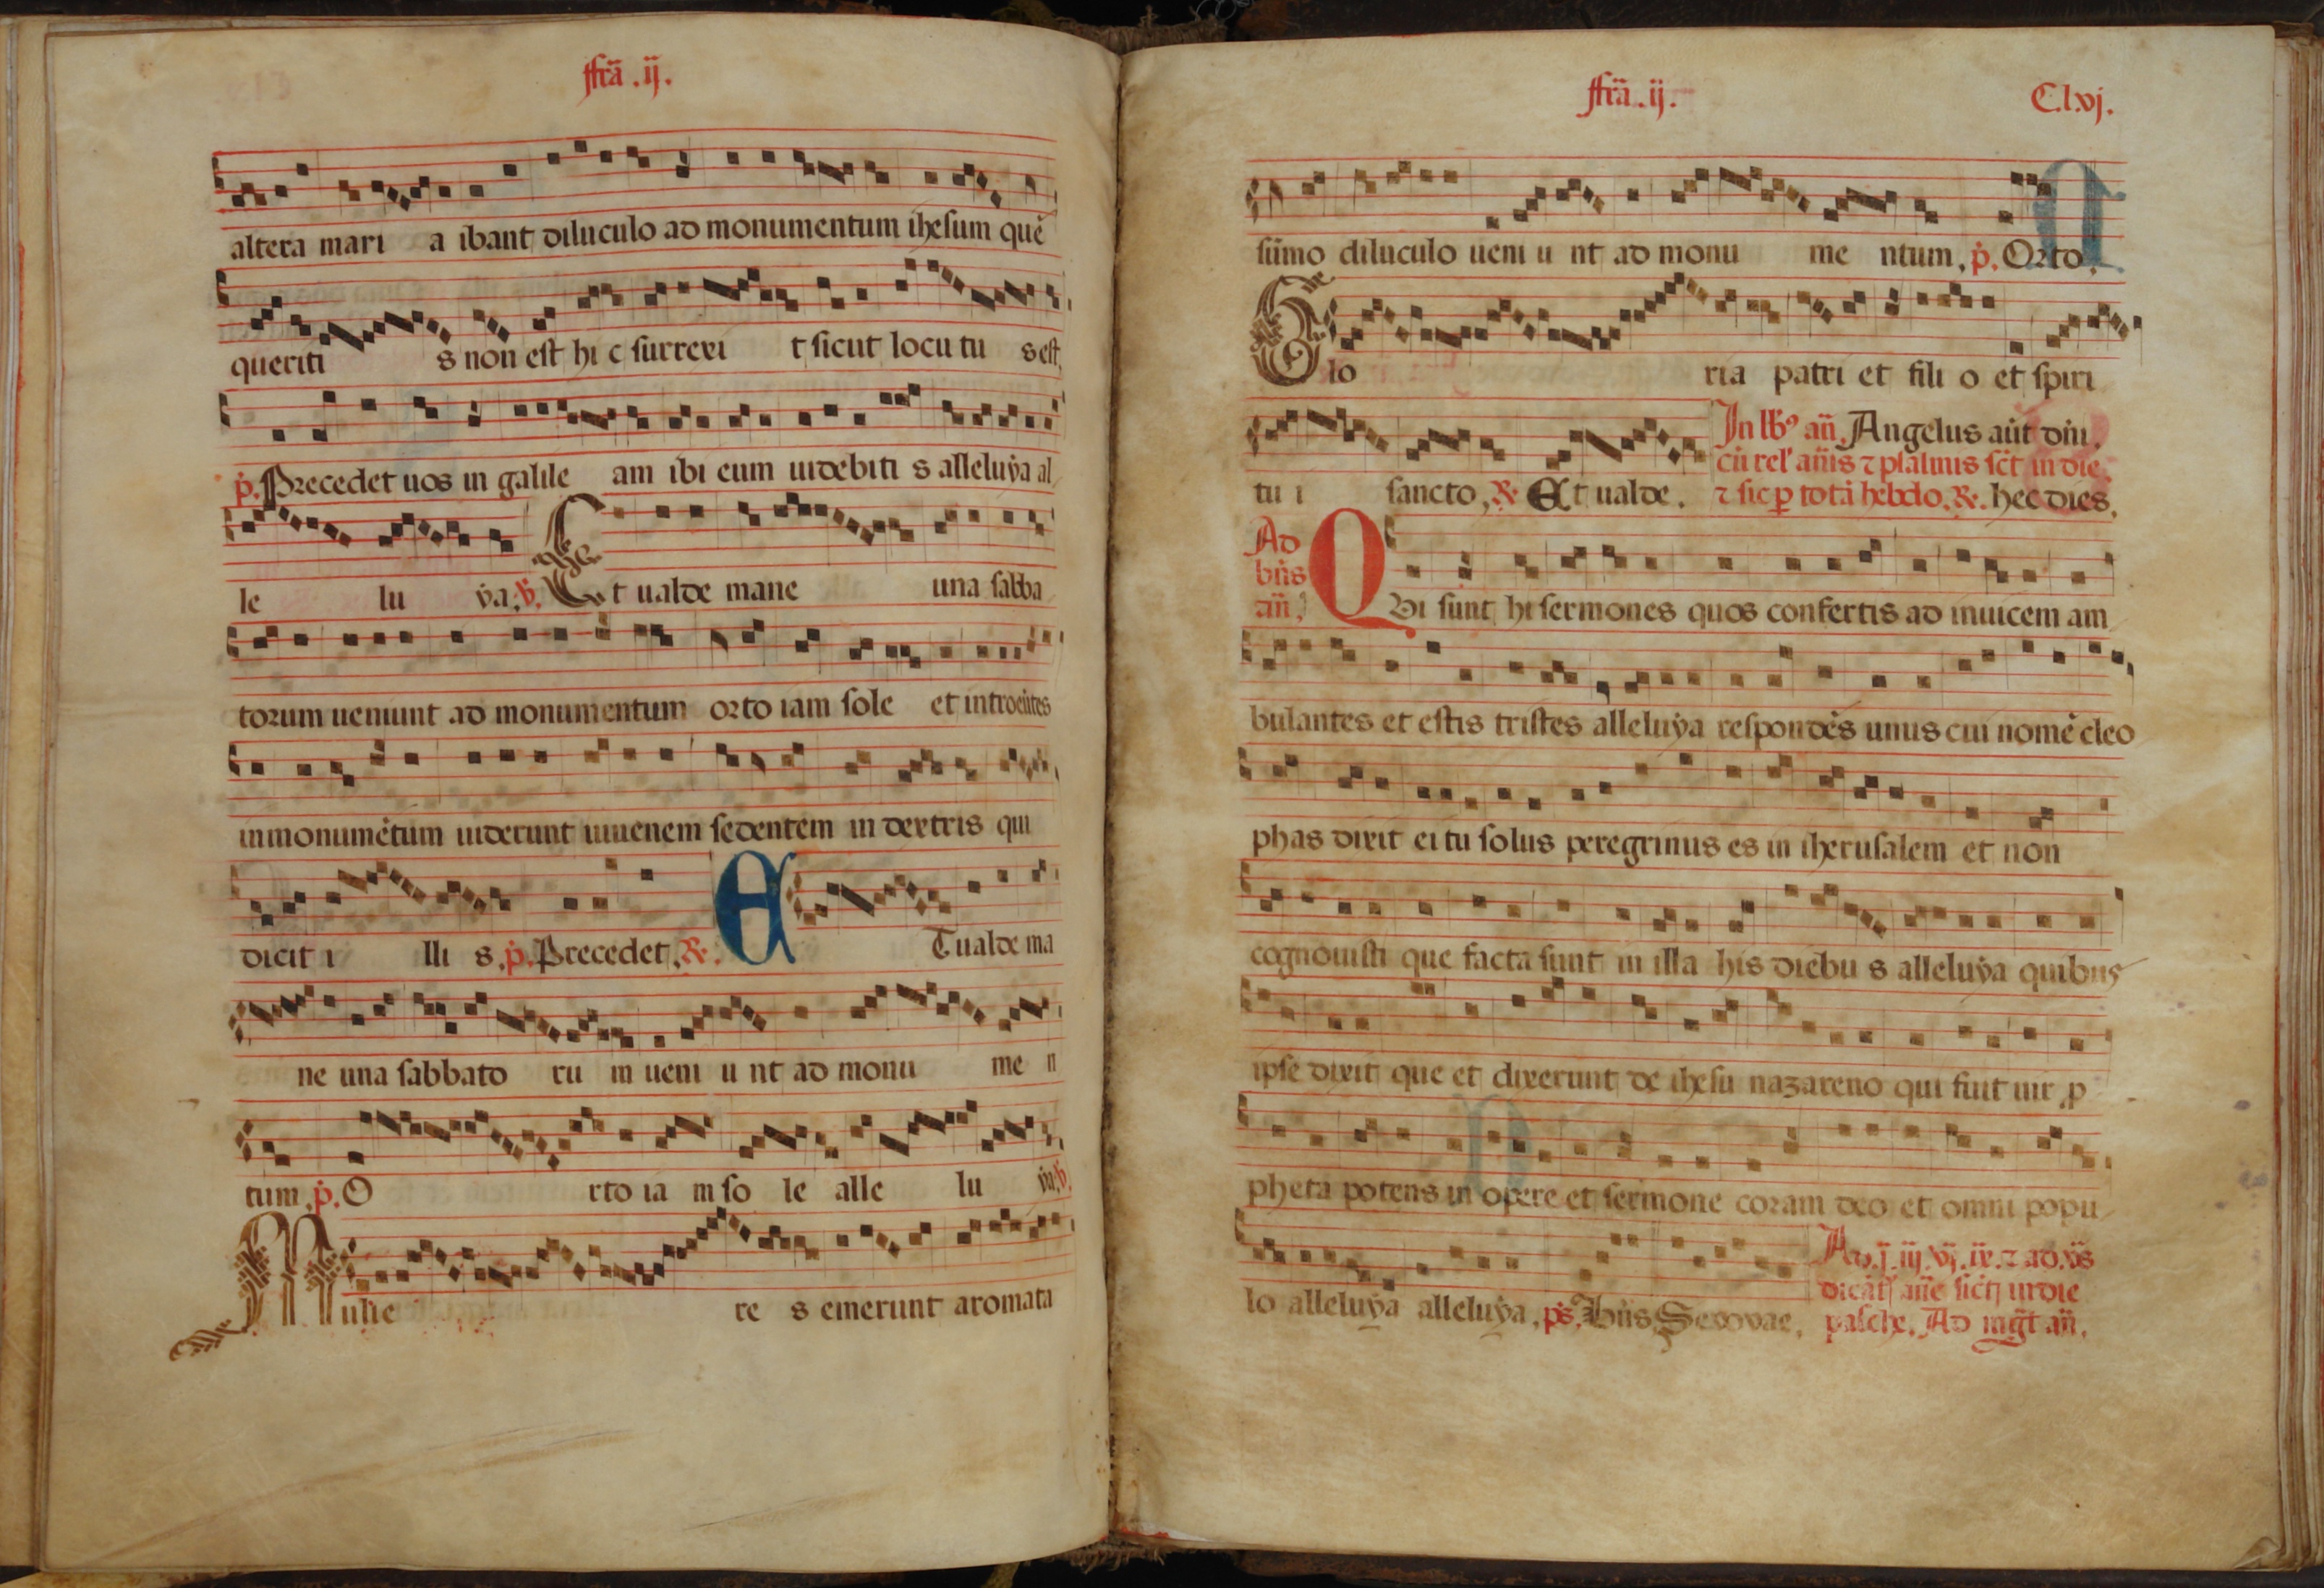 ffrā .ij.
altera mari a ibant diluculo ad monumentum ihesum quē
queriti s non est hi c surrexi t sicut locu tu s est
p̄. Precedet uos in galile am ibi eum uidebiti s alleluya al
le lu ya. v̄. Et ualde mane una sabba
torum ueniunt ad monumentum orto iam sole et introeūtes
in monumētum uiderunt iuuenem sedentem in dextris qui
dicit i lli s. p̄. Precedet. R. ETualde ma
ne una sabbato ru m ueni u nt ad monu me n
tum. p̄. O rto ia m so le alle lu ya. v̄.
Mulie re s emerunt aromata
ffrā. ij.
C.lvj.
sūmo diluculo ueni u nt ad monu me ntum. p̄. Orto.
Glo ria patri et fili o et spiri
tu i sancto. R. Et ualde.
In lb9 añ. Angelus aūt dñi.
cū rel' añis ⁊ psalmis sc̄t in die.
⁊ sic p totā hebdo. R. hec dies.
Ad
bñs
añ.
QVi sunt hi sermones quos confertis ad inuicem am
bulantes et estis tristes alleluya respondēs unus cui nomē cleo
phas dixit ei tu solus peregrinus es in iherusalem et non
cognouisti que facta sunt in illa his diebu s alleluya quibus
ipse dixit que et dixerunt de ihesu nazareno qui fuit uir p
pheta potens in opere et sermone coram deo et omni popu
lo alleluya alleluya. ps. Bñs Seuouae.
Ad. j. iij. vj. ix. ⁊ ad. v̄s
dicāt añe sic in die
pasche. Ad mgt añ.